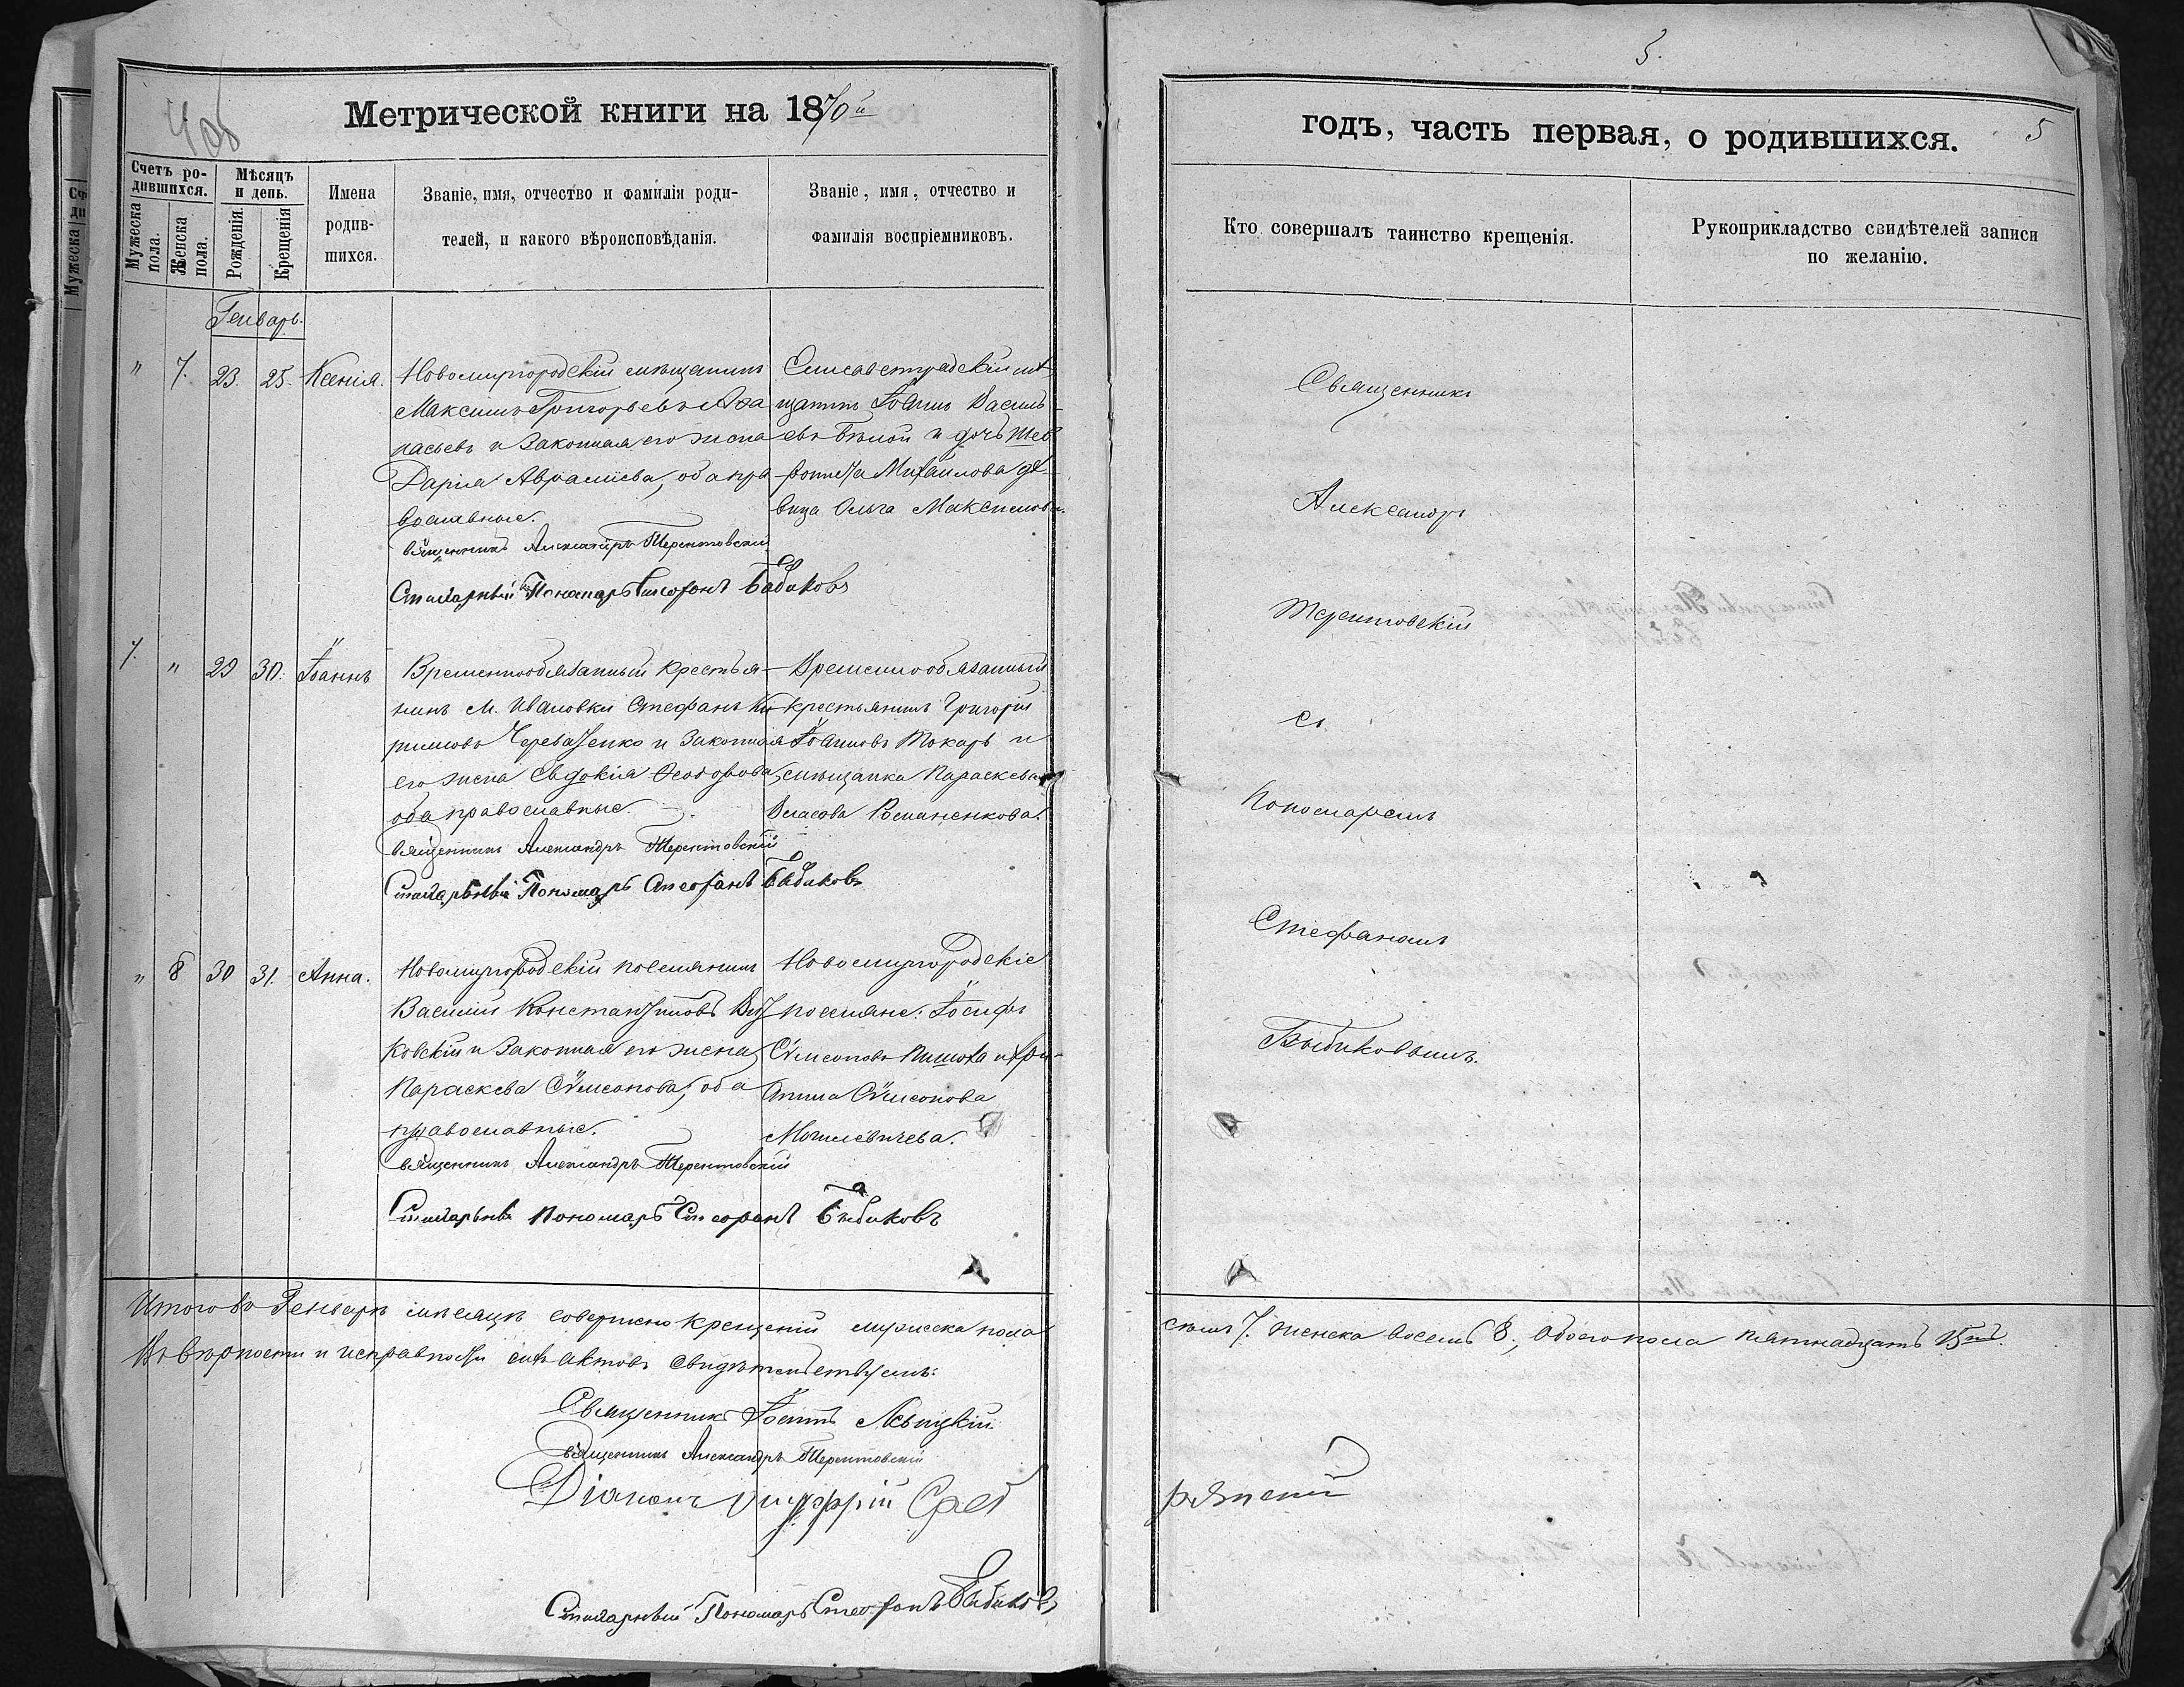 405
Метрической книги на 1870й
Счетъ ро-
дившихся.
Мужеска пола.
Женска пола.
Мѣсяцъ
и день.
Рожденія.
Крещенія
Имена
родив-
шихся.
Званіе, имя, отчество и фамилія роди-
телей, и какого вѣроисповѣданія.
Званіе, имя, отчество и
фамилія воспріемниковъ.
Генварь.
" 7. 23. 25. Ксенія.
Новомиргородскій мѣщанинъ
Максимъ Григорьевъ
и законная его жена
Дарія Авраміева, оба пра
вославные.
Священникъ Александръ Терентовскій
Стихарный Пономарь Стефанъ Бибиковъ
Елисаветградскій мѣ
щанинъ Іоаннъ Василь
евъ Бѣлой и дочь
Михаилова дѣ
вица Ольга Максимова.
7. " 29 30. Іоаннъ
Временнообязанный крестья-
нинъ М. Ивановки Стефанъ Ки
риловъ Череватенко и законная
его жена Евдокія Ѳеодорова,
оба православные.
Священникъ Александръ Терентовскій
Стихарный Пономарь Стефанъ Бибиковъ
Временнообязанный
крестьянинъ Григорій
Іоанновъ Токарь и
мѣщанка Параскева
Власова Романенкова.
" 8 30 31. Анна.
Новомиргородскій поселянинъ
Василій Константиновъ
ковскій и законная его жена
Параскева Сѵмеонова, оба
православные.
Священникъ Александръ Терентовскій
Стихарный Пономарь Стефанъ Бибиковъ
Новомиргородскіе
поселяне: Іосифъ
Сѵмеоновъ
Сѵмеонова
Могилевичева.
Итого въ Генварѣ мѣсяцѣ совершено крещеній мужеска пола
Въ вѣрности и исправности сихъ актовъ свидѣтельствуемъ:
Священникъ Іоаннъ Левицкій.
Священникъ Александръ Терентовскій
Діаконъ
Стихарный Пономарь Стефанъ Бибиковъ
5.
годъ, часть первая, о родившихся.
5
Кто совершалъ таинство крещенія.
Рукоприкладство свидѣтелей записи
по желанію.
Священникъ
Александръ
Терентовскій
съ
Пономаремъ
Стефаномъ
Бибиковымъ.
седмь 7. женска восемь 8., обоего пола пятнадцать 15ть.